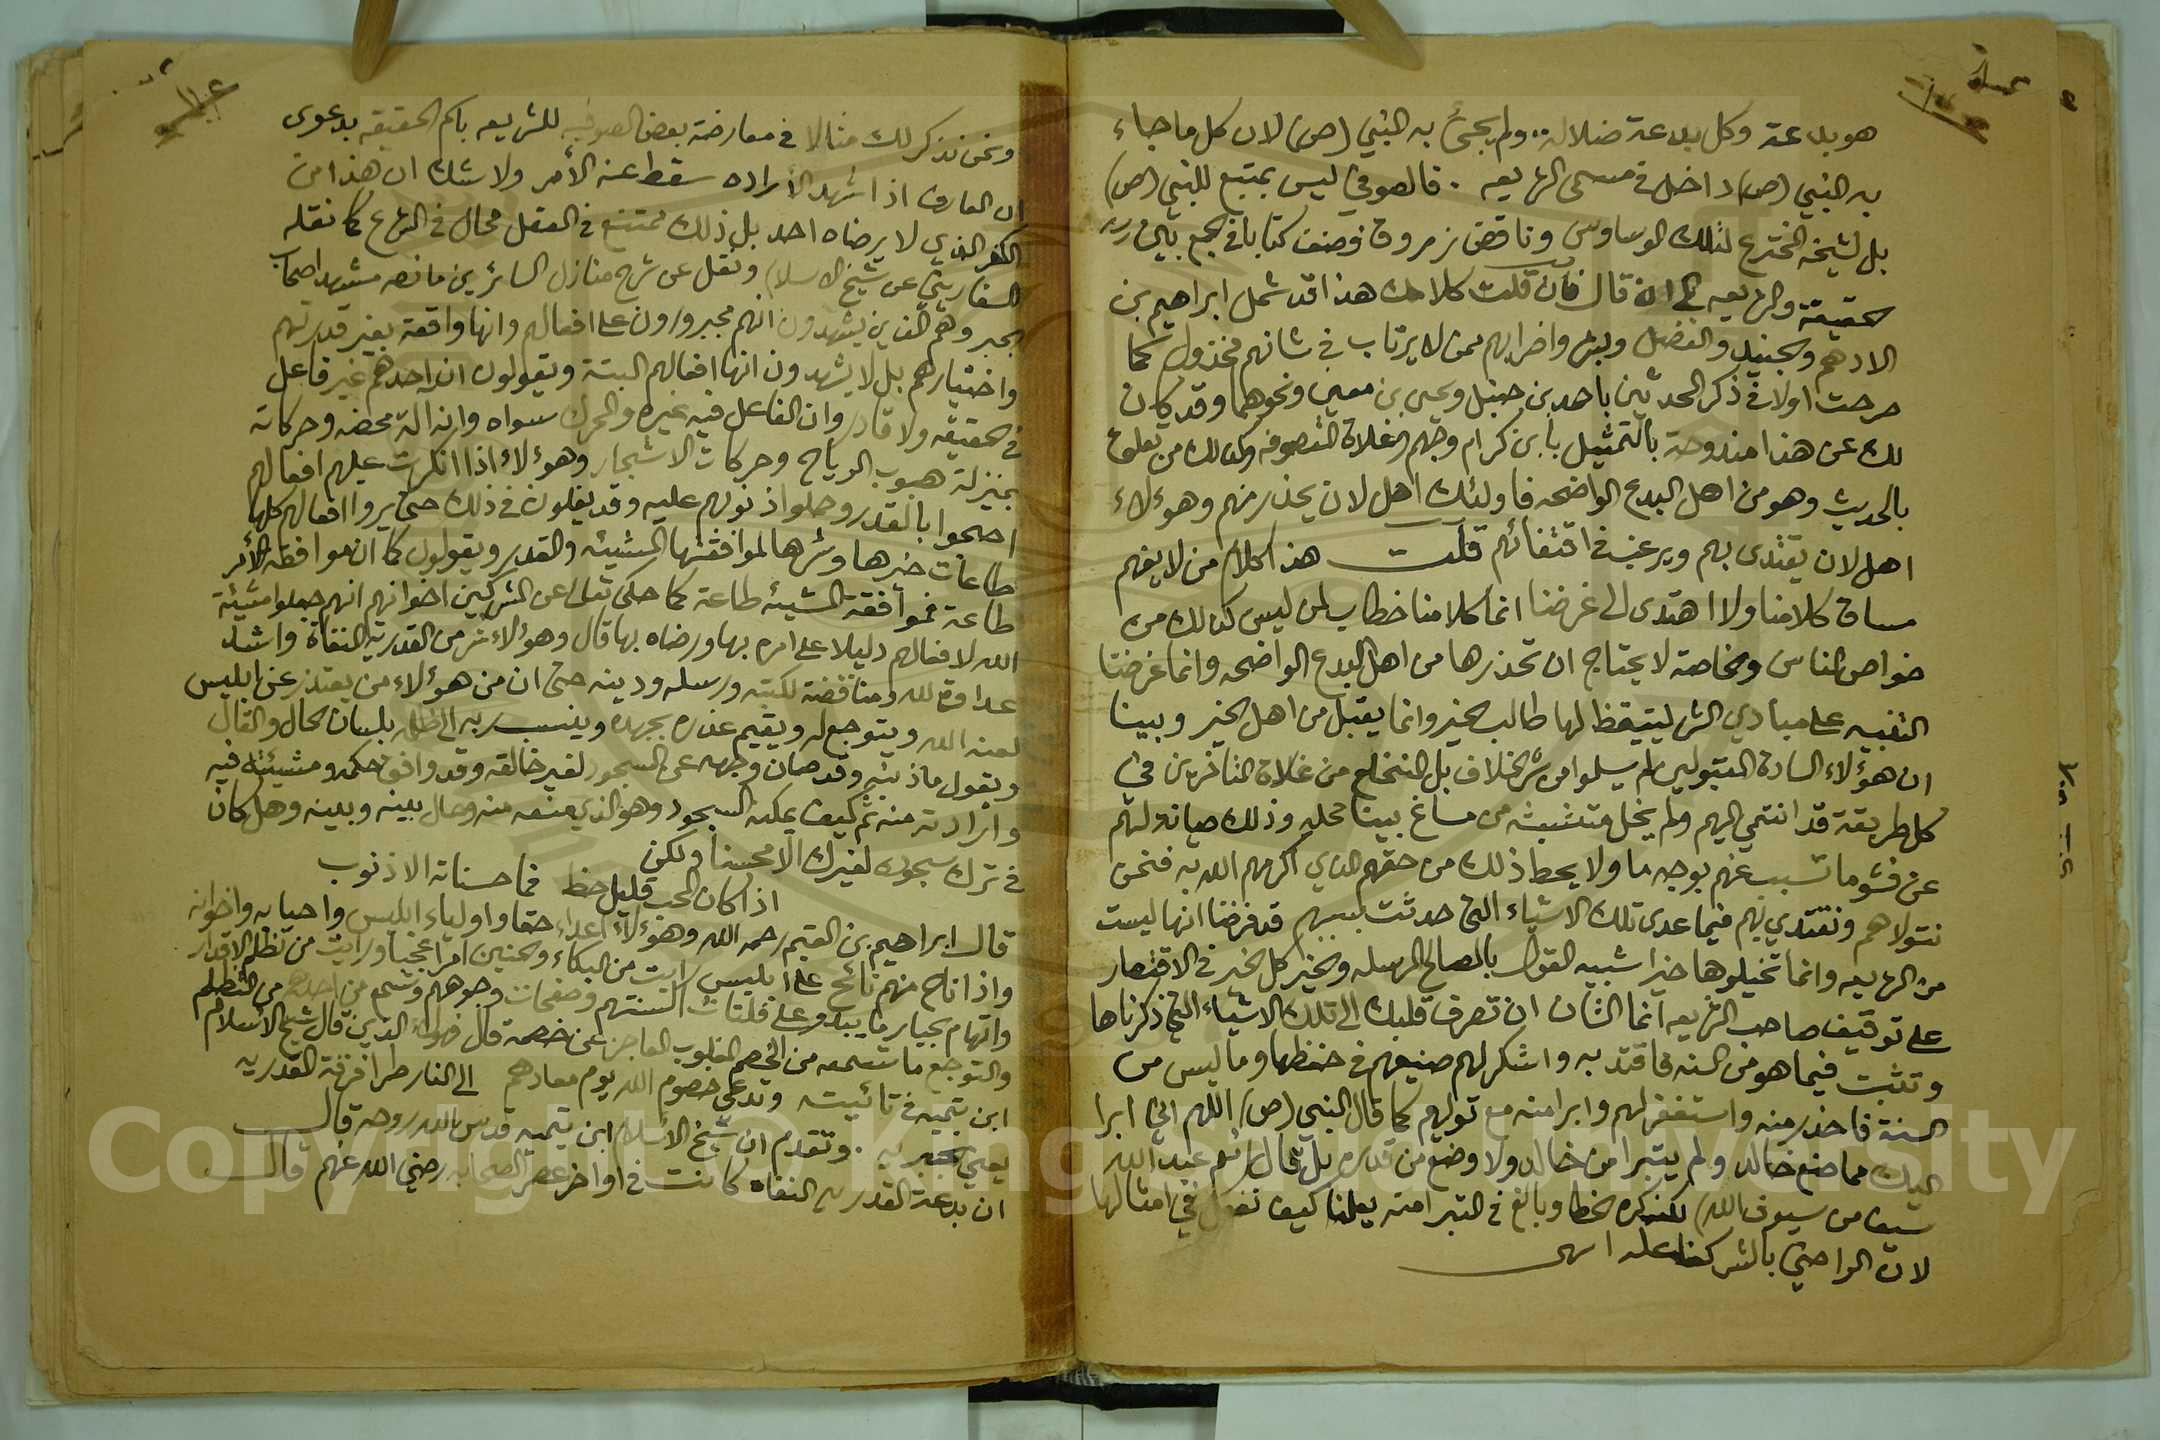 هو بدعة وكل بدعة ضلالة.. ولم يجئ به النبي (ص) لان كل ما جاء
به النبي (ص) داخل في مسمى الشريعه . فالصوفي ليس بمتبع للنبي (ص)
بل لشيخه المخترع لتلك الوساوس وناقض زروق فصنف كتابا في الجمع بين
الحقيقة والشريعه الى ان قال فان قلت كلامك هذا قد شمل ابراهيم بن
الادهم والجنيد والفضيل وبشر واضرابهم ممن لا يرتاب في شانهم كما
صرحت اولا في ذكر المحدثين باحمد بن حنبل ويحيى بن معين ونحوهما وقد كان
لك عن هذا مندوحة بالتمثيل بابن كرام وجهم وغلاة المتصوفه وكذلك من تعلق
بالحديث وهو من اهل البدع الواضحه فاولئك اهل لان يحذر منهم وهؤلاء
اهل لان يقتدى بهم ويرغب في اقتفائهم قلت هذا كلام من لا يفهم
مساق كلامنا ولا اهتدى الى غرضنا انما كلامنا خطاب لمن ليس كذلك من
خواص الناس والخاصة لا يحتاج ان تحذرها من اهل البدع الواضحه وانما غرضنا
التنبيه على مبادي الشر ليتيقظ لها طالب الخير وانما يقبل من اهل الخير وبينا
ان هؤلاء السادة المقبولين لم يسلموا من شر الخلاف بل المنخلع من غلاة المتأخرين في
كل طريقة قد انتمى اليهم ولم يخل متشبث من مساغ بينا محله وذلك صيانة لهم
عن فشو ما تسبب عنهم بوجه ما ولا يحط ذلك من حقهم الذي اكرمهم الله به فنحن
نتولاهم ونقتدي بهم فيما عدى تلك الاشياء التي حدثت بسببهم قد فرضنا انها ليست
من الشريعه وانما تخيلوها خيرا شبيه القول بالمصالح المرسله والخير كل الخير في الاقتصار
على توقيف صاحب الشريعه انما الشان ان تصرف قلبك الى تلك الاشياء التي ذكرناها
وتثبت فيما هو من السنه فاقتد به واشكر لهم صنيعهم في حفظها وما ليس من
السنة فاحذر منه واستغفر لهم وابرا منه مع توليهم كما قال النبي (ص) اللهم اني ابرا
اليك مما صنع خالد ولم يتبرا من خالد ولا وضع من قدره بل قال نعم عبد الله
سيف من سيوف الله) لكنه كره الخطا وبالغ في التبرا منه يعلمنا كيف نفعل في امثالها
لان الراضي بالشر كفاعله اهـ
ونحن نذكر لك مثالا في معارضة بعض الصوفيه للشريعه باسم الحقيقه بدعوى
ان العارف اذا شهد الأراده سقط عنه الأمر ولا شك ان هذا من
الكفر الذي لا يرضاه احد بل ذلك ممتنع في العقل محال في الشرع كما نقله
السفاريني عن شيخ الاسلام ونقل عن شرح منازل السائرين ما نصه مشهد اصحاب
الجبر وهم الذين يشهدون انهم مجبورون على افعالهم وانها واقعة بغير قدرتهم
واختيارهم بل لا يشهدون انها افعالهم البتة ويقولون ان احدهم غير فاعل
في الحقيقه ولا قادر وان الفاعل فيه غيره والمحرك سواه وانه الة محضه وحركاته
بمنزلة هبوب الرياح وحركات الاشجار وهؤلاء اذا انكرت عليهم افعالهم
احتجوا بالقدر وحملوا ذنوبهم عليه وقد يغلون في ذلك حتى يروا افعالهم كلها
طاعات خيرها وشرها لموافقتها المشيئه والقدر ويقولون كما ان موافقة الأمر
طاعة فموافقة المشيئه طاعة كما حكى تعالى عن المشركين اخوانهم انهم جعلوا مشيئة
الله لافعالهم دليلا على امره بها ورضاه بها قال وهؤلاء شر من القدريه النفاة واشد
عداوة لله ومناقضة لكتبه ورسله ودينه حتى ان من هؤلاء من يعتذر عن ابليس
لعنه الله ويتوجع له ويقيم عذره بجهده وينسب ربه الى ظلمه بلسان الحال والقال
ويقول ما ذنبه وقد صان وجهه عن السجود لغير خالقه وقد وافق حكمه ومشيئته فيه
وارادته منه ثم كيف يمكنه السجود وهو الذي منعه منه وحال بينه وبينه وهل كان
في ترك سجوده لغيرك الا محسنا ولكن
اذا كان المحب قليل حظ فما حسناته الا ذنوب
قال ابراهيم بن القيم رحمه الله وهؤلاء اعداء الله حقا واولياء ابليس واحبابه واخوانه
واذا ناح منهم نائح على ابليس رايت من البكاء والحنين امرا عجبا ورايت من تظلم الاقدار
واتهام الجبار ما يبدو على فلتات السنتهم وصفحات وجوههم وتسمع من احدهم من التظلم
والتوجع ما تسمعه من الخصم المغلوب العاجز عن خصمه قال فهؤلاء الذين قال شيخ الأسلام
ابن تيميه في تائيته وتدعى خصوم الله يوم معادهم الى النار طرا فرقة القدريه
يعني الجبريه . وتقدم ان شيخ الأسلام ابن تيميه قدس الله روحه قال
ان بدعة القدريه النفاه كانت في اواخر عصر الصحابه رضي الله عنهم قال
Copyright © King Saud University